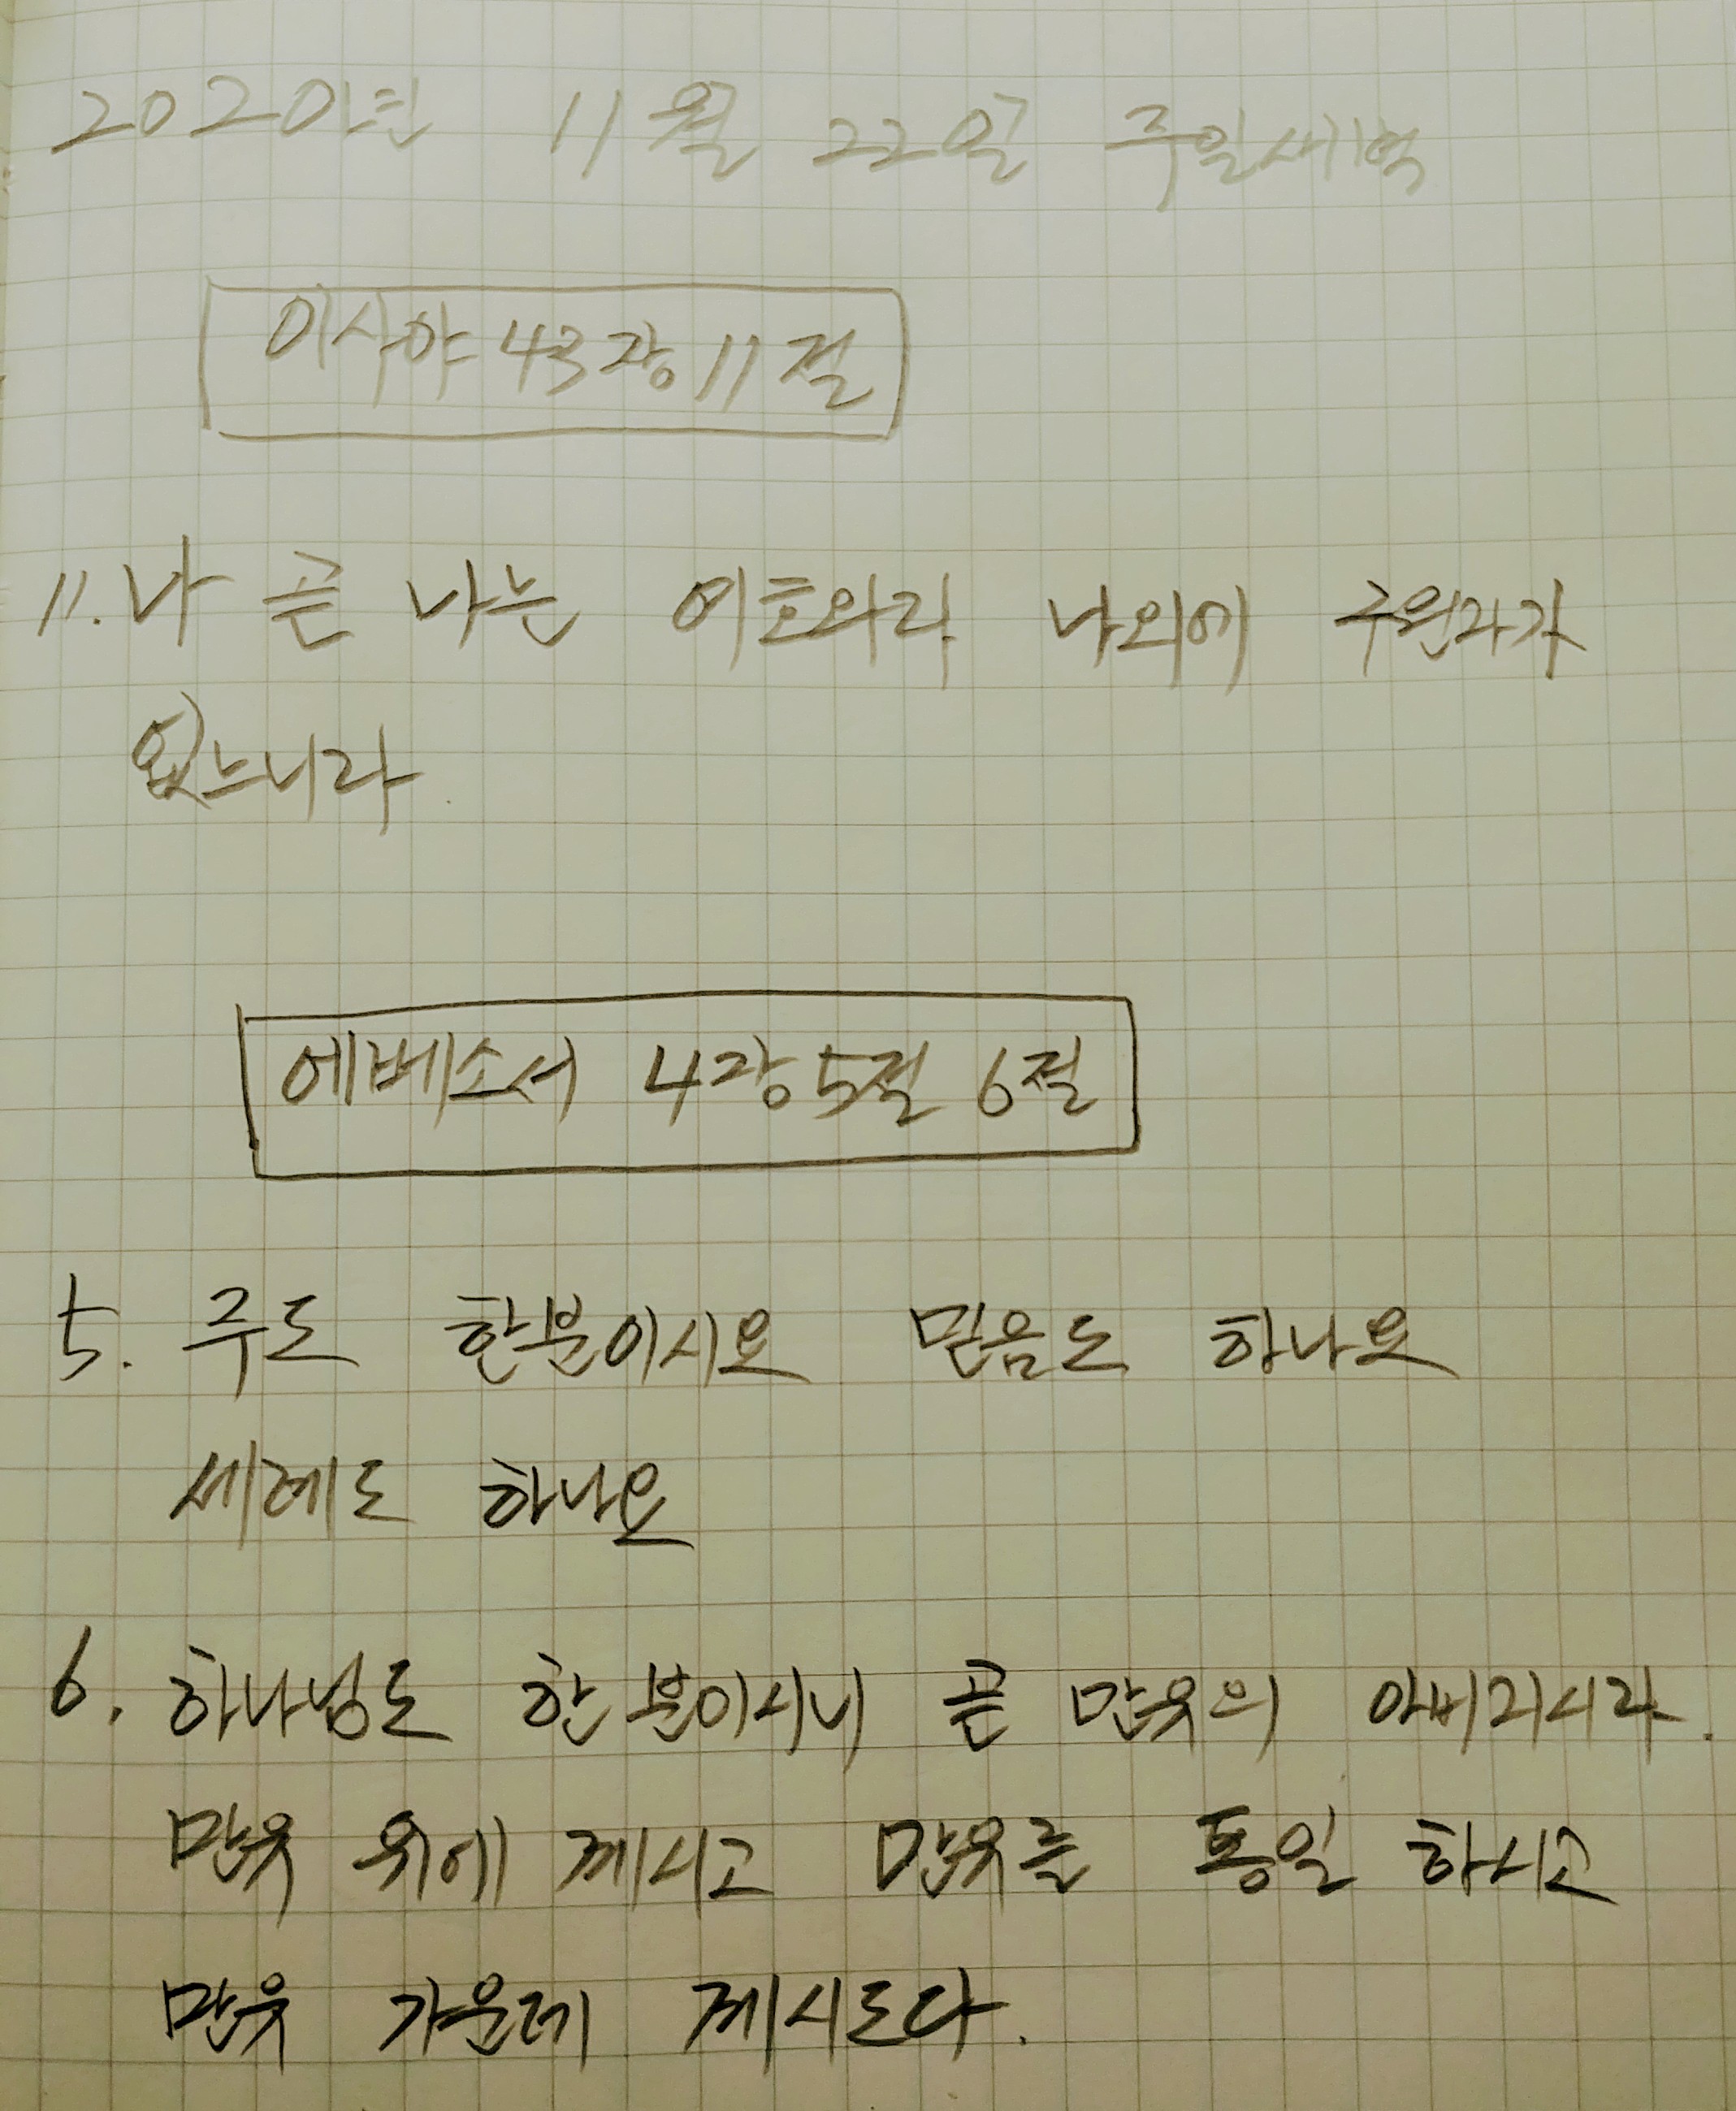 2020년 11월 22일 주일새벽
이사야 43장 11절
11. 나 곧 나는 여호와라 나외에 구원자가
없느니라
에베소서 4장 5절 6절
5. 주도 한분이시요 믿음도 하나요
세례도 하나요
6. 하나님도 한분이시니 곧 만유의 아버지시라.
만유 위에 계시고 만유를 통일 하시고
만유 가운데 계시도다.